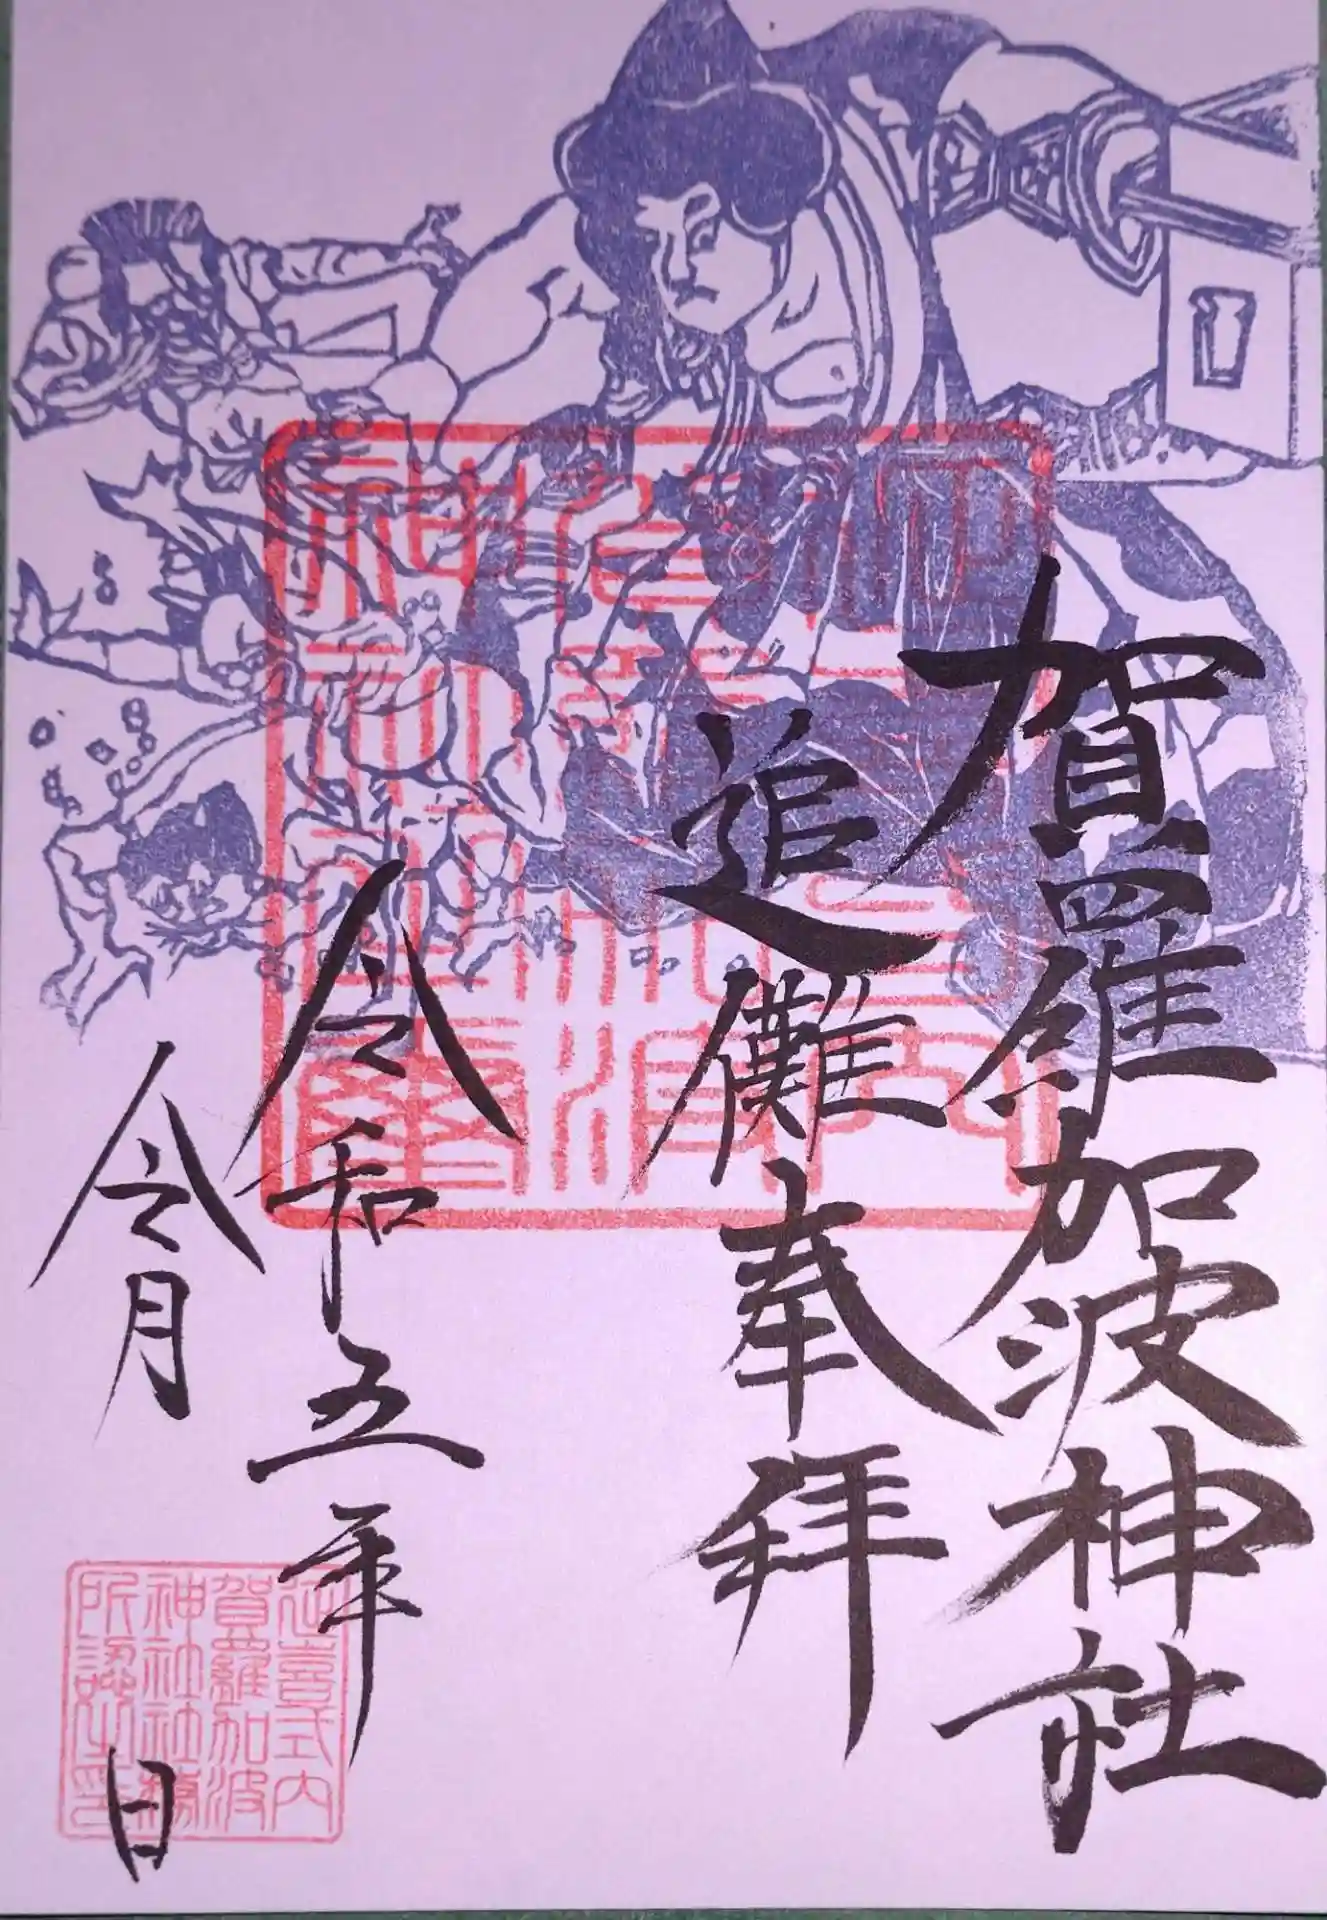 賀羅加波神社
追儺奉拝
令和五年
令月
日
延喜式内
賀羅加波
神社社務
所認印